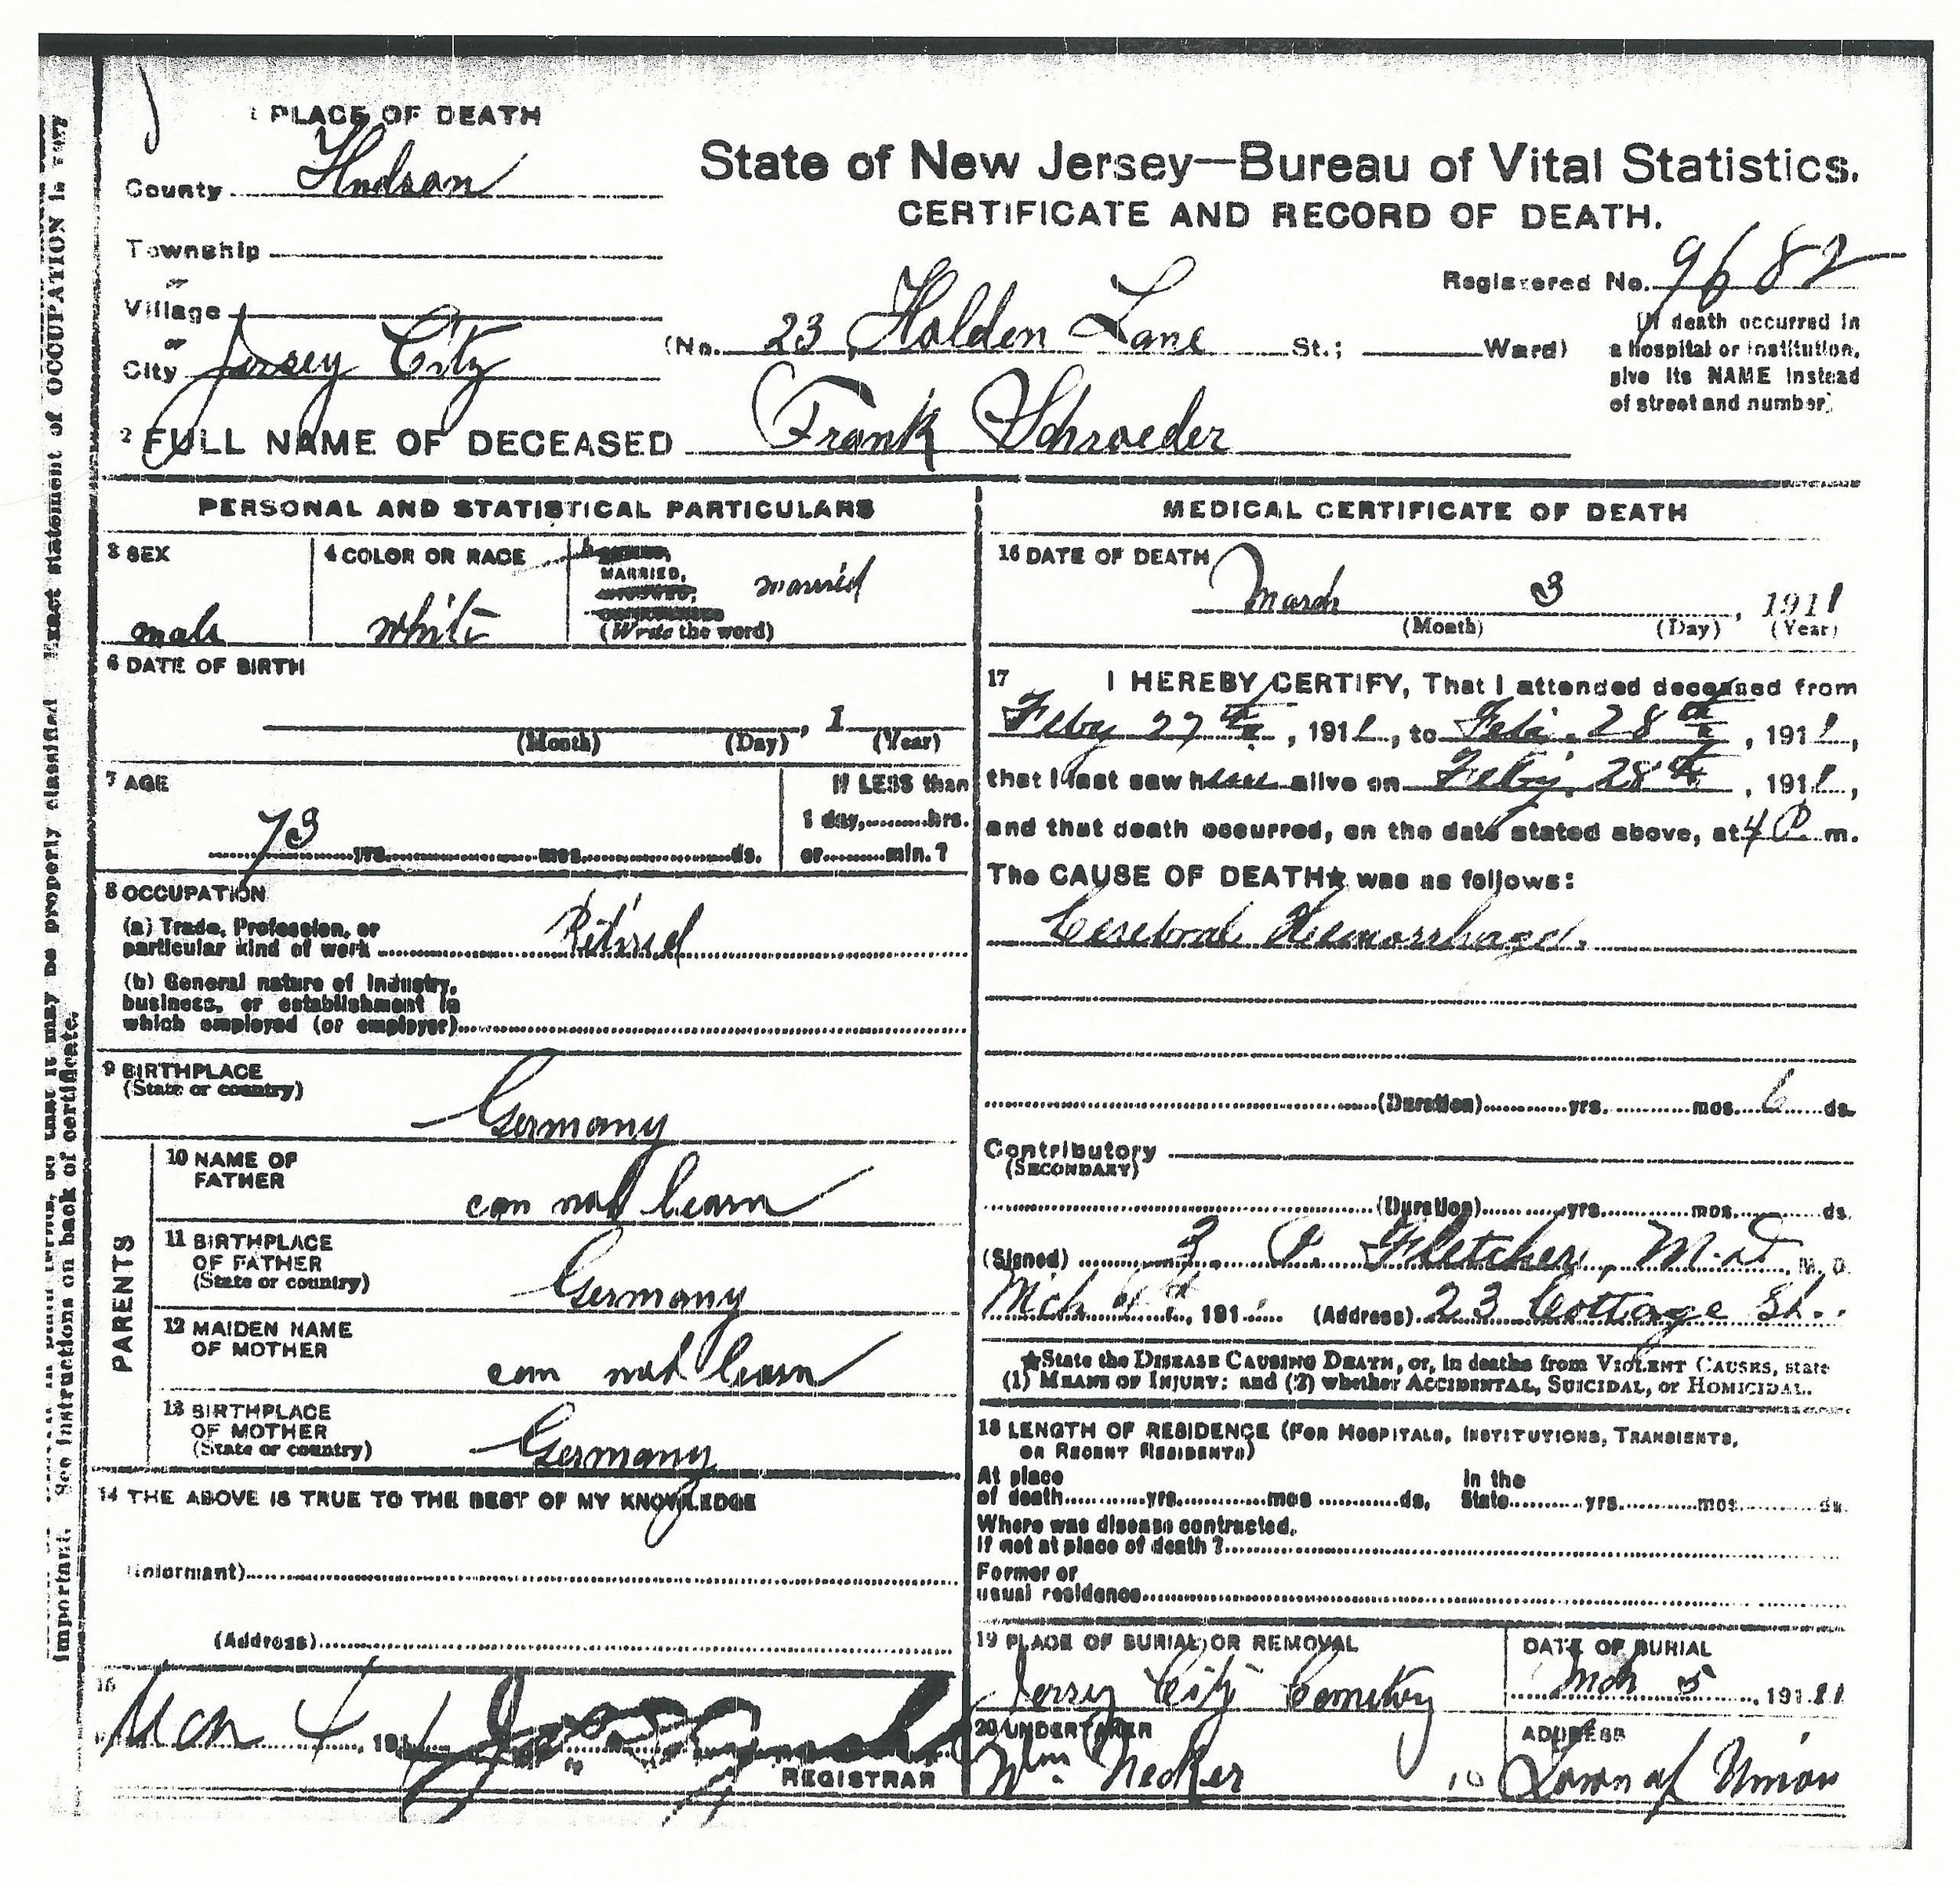 1 PLACE OF DEATH
County Hudson
Township
or
Village
or
City Jersey City
State of New Jersey—Bureau of Vital Statistics.
CERTIFICATE AND RECORD OF DEATH.
Registered No. 9682
(No. 23 Holden Lane St.; Ward)
(If death occurred in
a hospital or institution,
give its NAME instead
of street and number)
2 FULL NAME OF DECEASED Frank Schroeder
PERSONAL AND STATISTICAL PARTICULARS
3 SEX
male
4 COLOR OR RACE
white
MARRIED,
married
(Write the word)
6 DATE OF BIRTH
, 1
(Month) (Day) (Year)
7 AGE
73 yrs. mos. ds.
If LESS than
1 day, hrs.
or min.?
8 OCCUPATION
(a) Trade, Profession, or
particular kind of work Retired
(b) General nature of Industry,
business, or establishment in
which employed (or employer)
9 BIRTHPLACE
(State or country)
Germany
PARENTS
10 NAME OF
FATHER
can not learn
11 BIRTHPLACE
OF FATHER
(State or country)
Germany
12 MAIDEN NAME
OF MOTHER
can not learn
13 BIRTHPLACE
OF MOTHER
(State or country)
Germany
14 THE ABOVE IS TRUE TO THE BEST OF MY KNOWLEDGE
(Informant)
(Address)
15
Mch 4, 191
REGISTRAR
MEDICAL CERTIFICATE OF DEATH
16 DATE OF DEATH
March 3, 1911
(Month) (Day) (Year)
17 I HEREBY CERTIFY, That I attended deceased from
Feby 27th, 1911, to Feby. 28th, 1911,
that I last saw him alive on Feby. 28th, 1911,
and that death occurred, on the date stated above, at 4 P m.
The CAUSE OF DEATH★ was as follows:
Cerebral Hemorrhage.
(Duration) yrs. mos. 6 ds.
Contributory
(SECONDARY)
(Duration) yrs. mos. ds.
(Signed) Fletcher, M.D., M. D.
Mch, 191 (Address) 23 Cottage St.
★State the DISEASE CAUSING DEATH, or, in deaths from VIOLENT CAUSES, state
(1) MEANS OF INJURY; and (2) whether ACCIDENTAL, SUICIDAL, or HOMICIDAL.
18 LENGTH OF RESIDENCE (FOR HOSPITALS, INSTITUTIONS, TRANSIENTS,
OR RECENT RESIDENTS)
At place
of death yrs. mos ds. In the
State yrs. mos. ds.
Where was disease contracted,
if not at place of death?
Former or
usual residence
19 PLACE OF BURIAL OR REMOVAL
Jersey City Cemetery
DATE OF BURIAL
Mch 5, 1911
20 UNDERTAKER
Wm. Necker
ADDRESS
Town of Union
properly classified. Exact statement of OCCUPATION is very
important. See instructions on back of certificate.